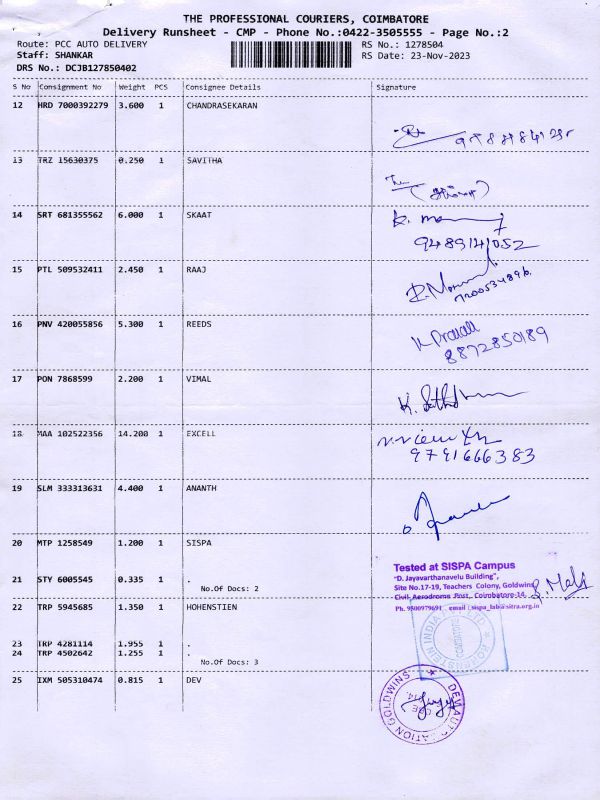 THE PROFESSIONAL COURIERS, COIMBATORE
Delivery Runsheet - CMP - Phone No.:0422-3505555 - Page No.:2
Route: PCC AUTO DELIVERY RS No.: 1278504
Staff: SHANKAR RS Date: 23-Nov-2023
DRS No.: DCJB127850402
S No Consignment No Weight PCS Consignee Details Signature
12 HRD 7000392279 3.600 1 CHANDRASEKARAN
13 TRZ 15630375 0.250 1 SAVITHA
14 SRT 681355562 6.000 1 SKAAT
9489141052
15 PTL 509532411 2.450 1 RAAJ
16 PNV 420055856 5.300 1 REEDS
8872850189
17 PON 7868599 2.200 1 VIMAL
18 MAA 102522356 14.200 1 EXCELL
9791666383
19 SLM 333313631 4.400 1 ANANTH
20 MTP 1258549 1.200 1 SISPA
Tested at SISPA Campus
"D. Jayavarthanavelu Building",
21 STY 6005545 0.335 1 .
Site No.17-19, Teachers Colony, Goldwins
No.Of Docs: 2
Civil Aerodrome Post, Coimbatore-14.
22 TRP 5945685 1.350 1 HOHENSTIEN
Ph. 9500979691 email : sispa_lab@sitra.org.in
23 TRP 4281114 1.955 1 .
24 TRP 4502642 1.255 1 .
No.Of Docs: 3
25 IXM 505310474 0.815 1 DEV